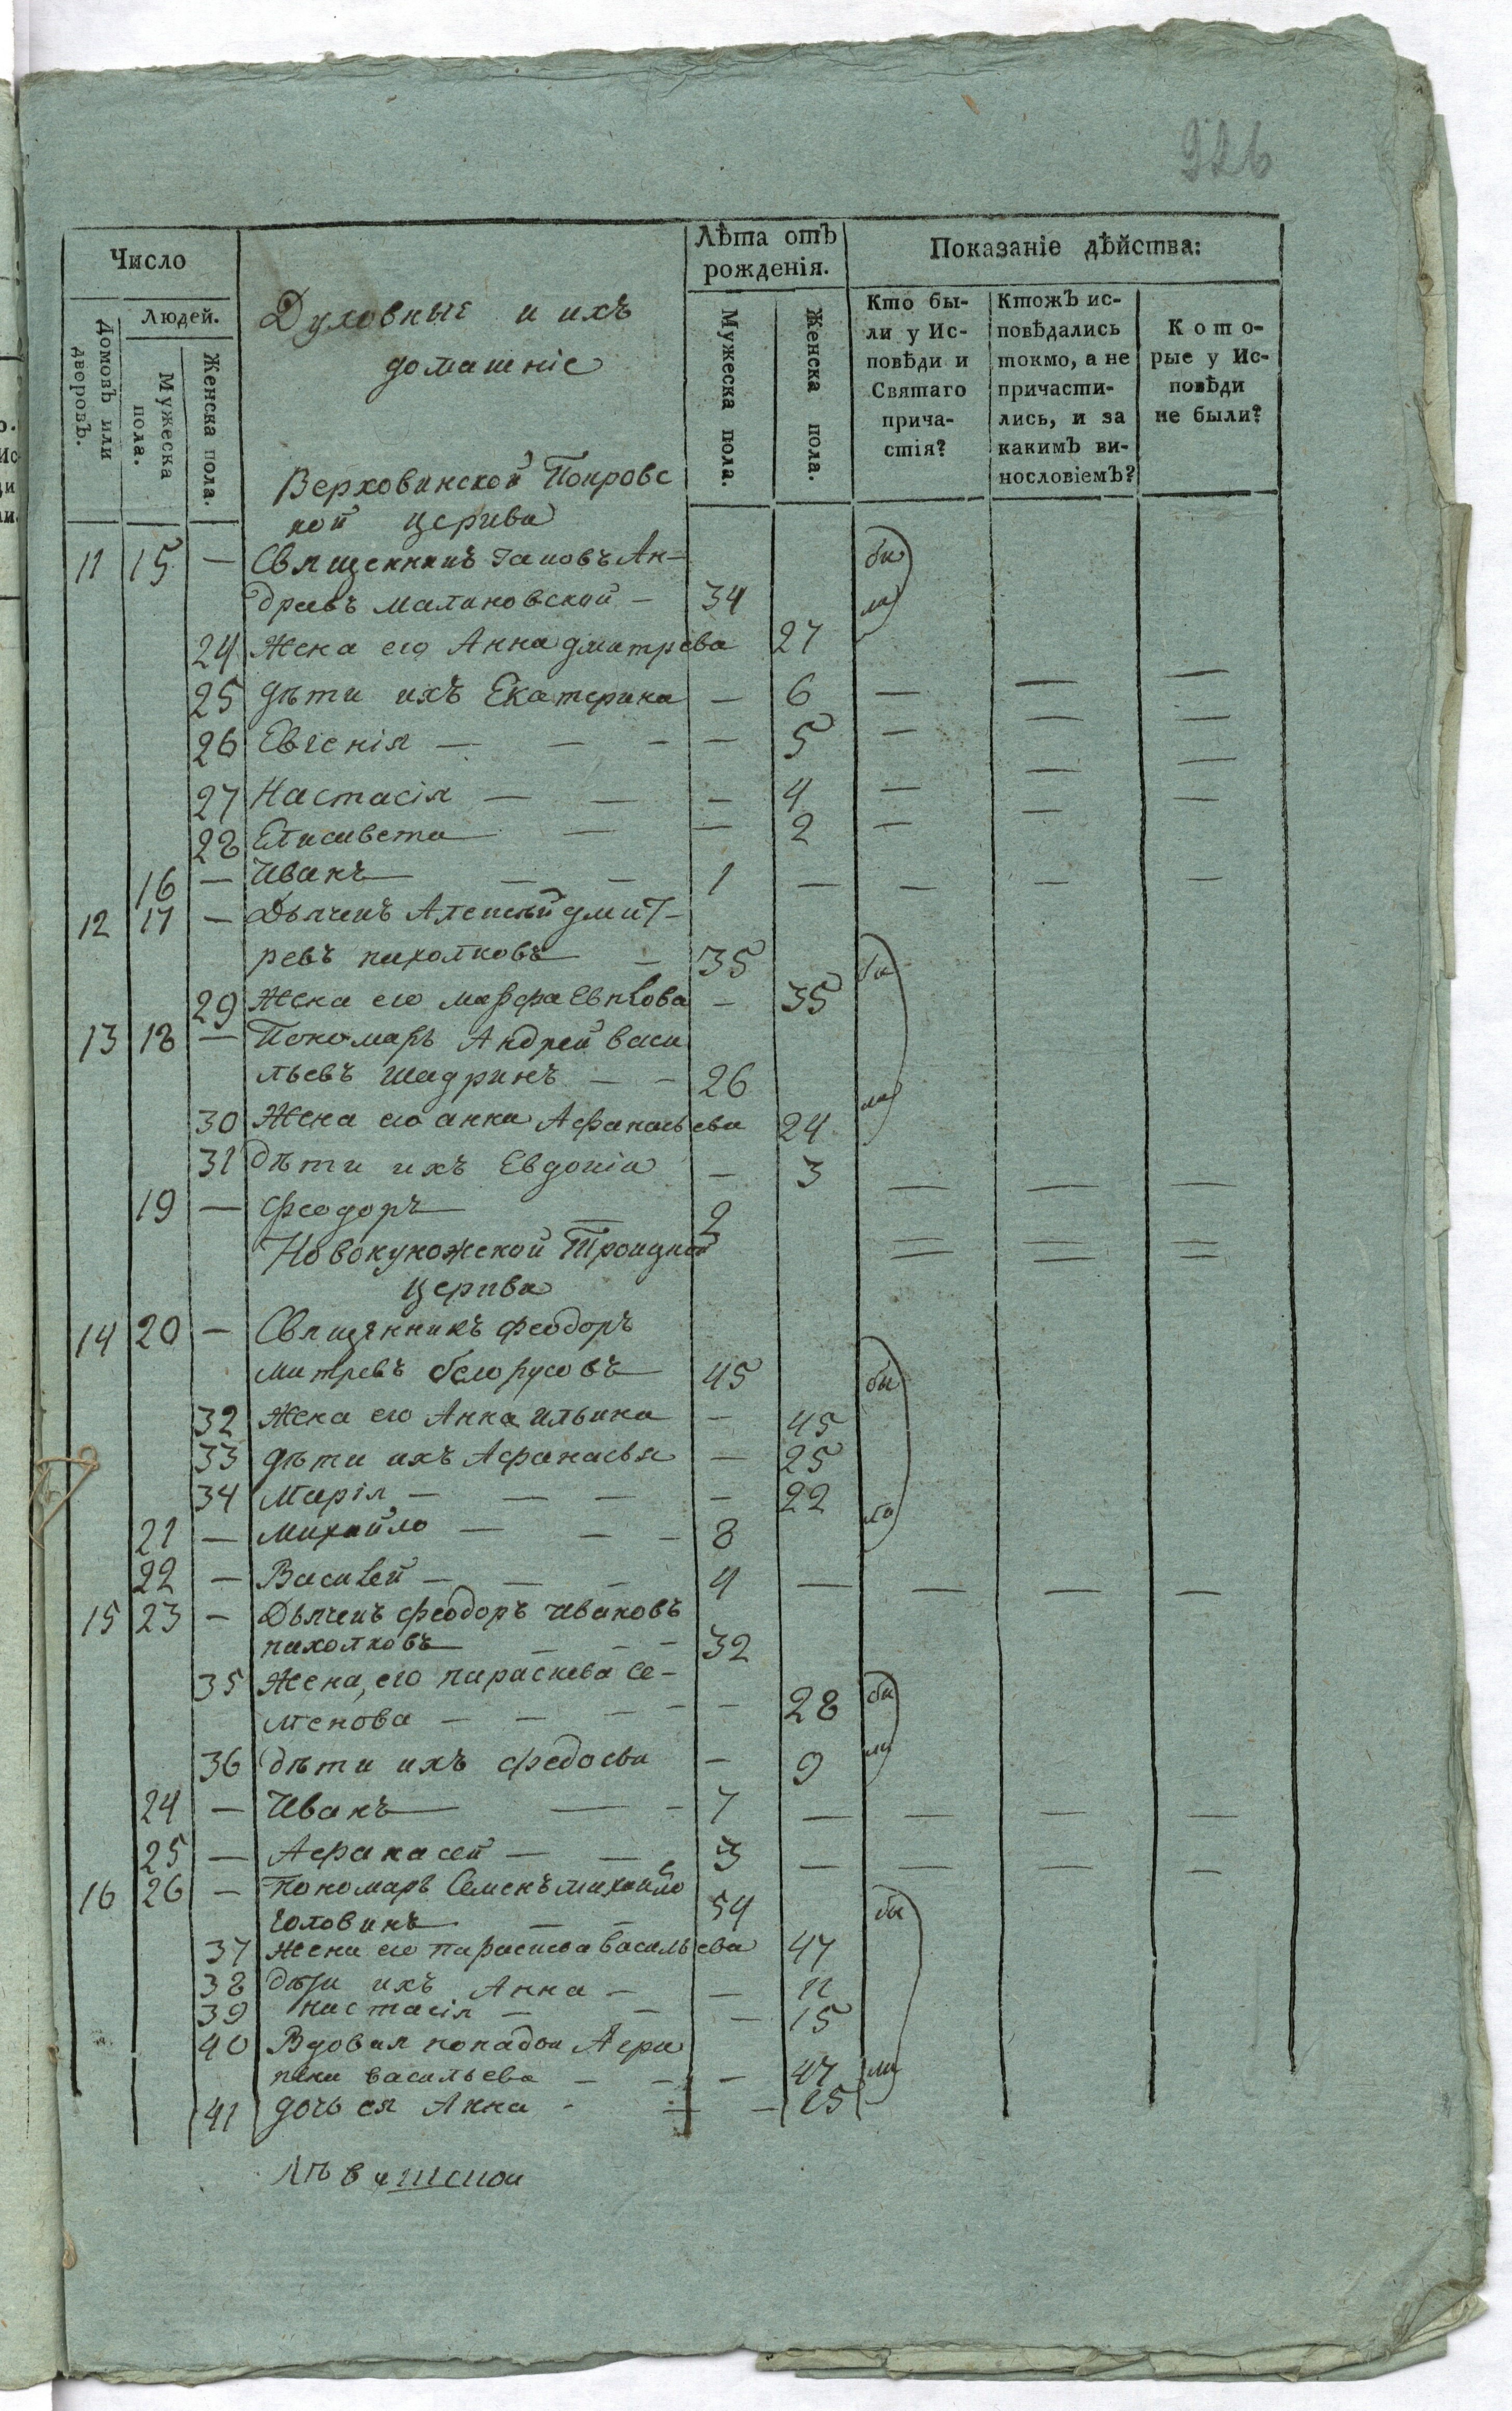 926
Число
Лѣта отъ рожденія.
Показаніе дѣйства:
Домовъ или дворовъ.
Людей.
Мужеска пола.
Женска пола.
Духовные и ихъ
домашніе
Мужеска пола.
Женска пола.
Кто были у Исповѣди и Святаго причастія?
Ктожъ исповѣдались токмо, а не причастились, и за какимъ винословіемъ?
Которые у Исповѣди не были?
Верховинской Покровс
кой церкви
11 15 — Священникъ Іаковъ Ан= бы
древъ Малиновской — 34 ли
24 Жена его Анна дмитрева 27
25 дѣти ихъ Екатерина — 6 — — —
26 Евгенія — — — — 5 — — —
27 Настасія — — — 4 — — —
28 Елисавета — — 2 — — —
16 — Иванъ — — 1 — — — —
12 17 — Дьячекъ Алексѣй дмит-
ревъ пихолковъ — 35 бы
29 Жена его марфа Евпlова — 35
13 18 — Пономарь Андрей васи
льевъ шадринъ — — 26 ли
30 Жена его анна Афанасьева 24
31 дѣти ихъ Евдокіа — 3 — — —
19 — феодоръ — 2
Новокуножской Троицкой
церкви
14 20 — Священникъ феодоръ
митревъ белорусовъ 45 бы
32 Жена его Анна ильина — 45
33 дѣти ихъ Афанасья — 25
34 Марія — — — — 22 ли
21 — михайло — — — 8
22 — Василей — — — 4 — — — —
15 23 — Дьячекъ феодоръ ивановъ
пихолковъ — — — 32
35 Жена его параскева Се- бы
менова — — — — — 28
36 дѣти ихъ федосьи — 9 ли
24 — Иванъ — — 7 — — — —
25 — Афанасей — — 3 — — — —
16 26 — Пономарь Семенъ михайло
головинъ — — 54 бы
37 жена его параскева васильева 47
38 дѣти ихъ Анна — — 11
39 настасія — — — 15
40 Вдовая попадья Агри
пена васильева — — — 47 ли
41 дочь ея Анна - — — 25